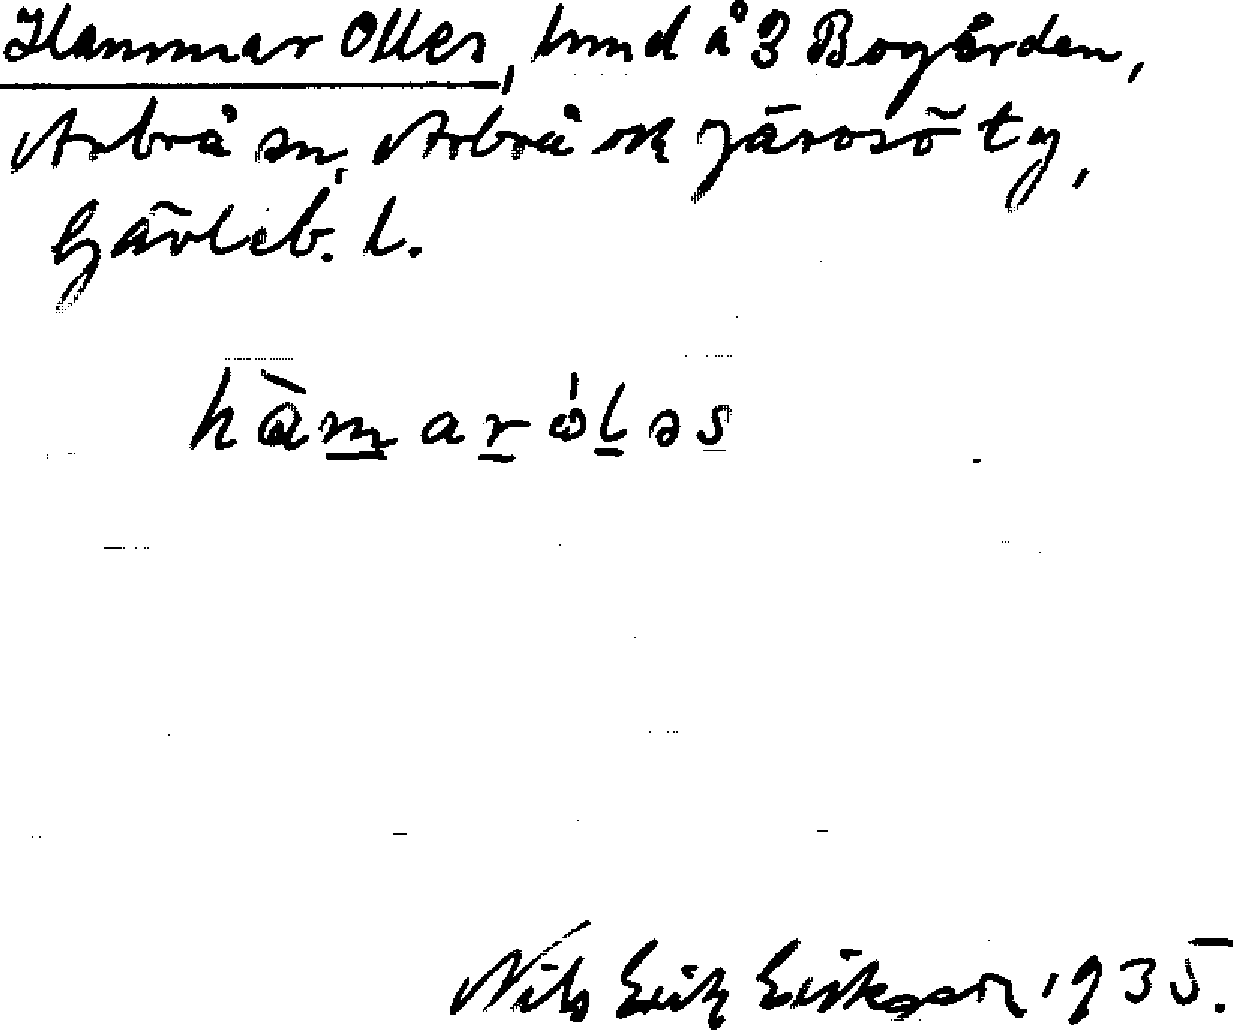 Hammar Olles, hmd å 3 Bogården,
Arbrå sn, Arbrå ok Järvsö tg,
Gävleb. l.
hàmarólǝs
Nils Erik Eriksson 1935.